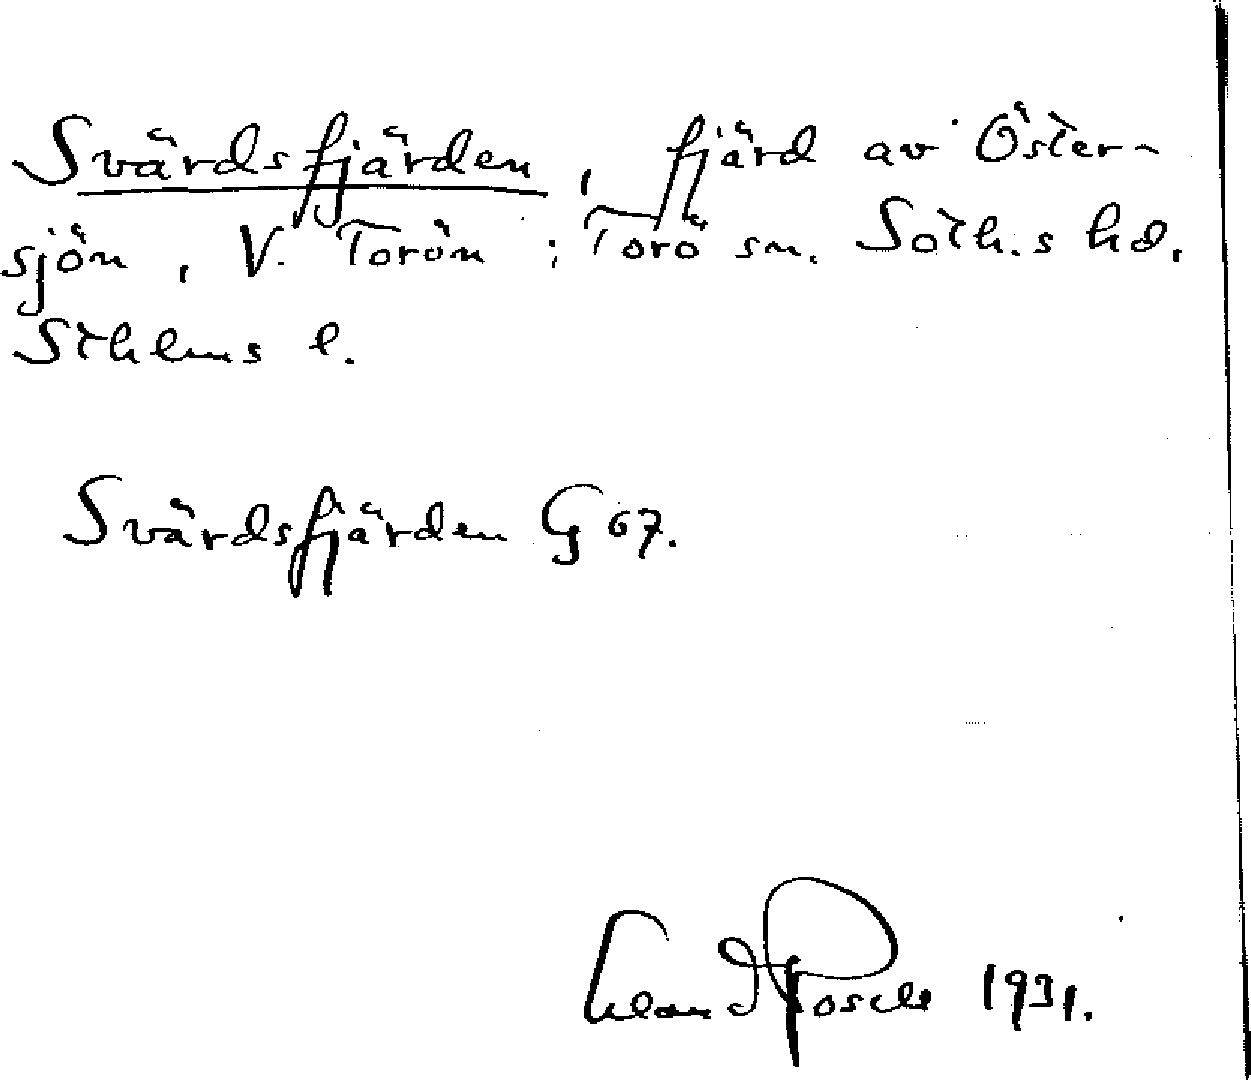 Svärdsfjärden, fjärd av Öster-
sjön, V. Torön; Torö sn. Soth.s hd.
Sthlms l.
Svärdsfjärden G 67.
1931.